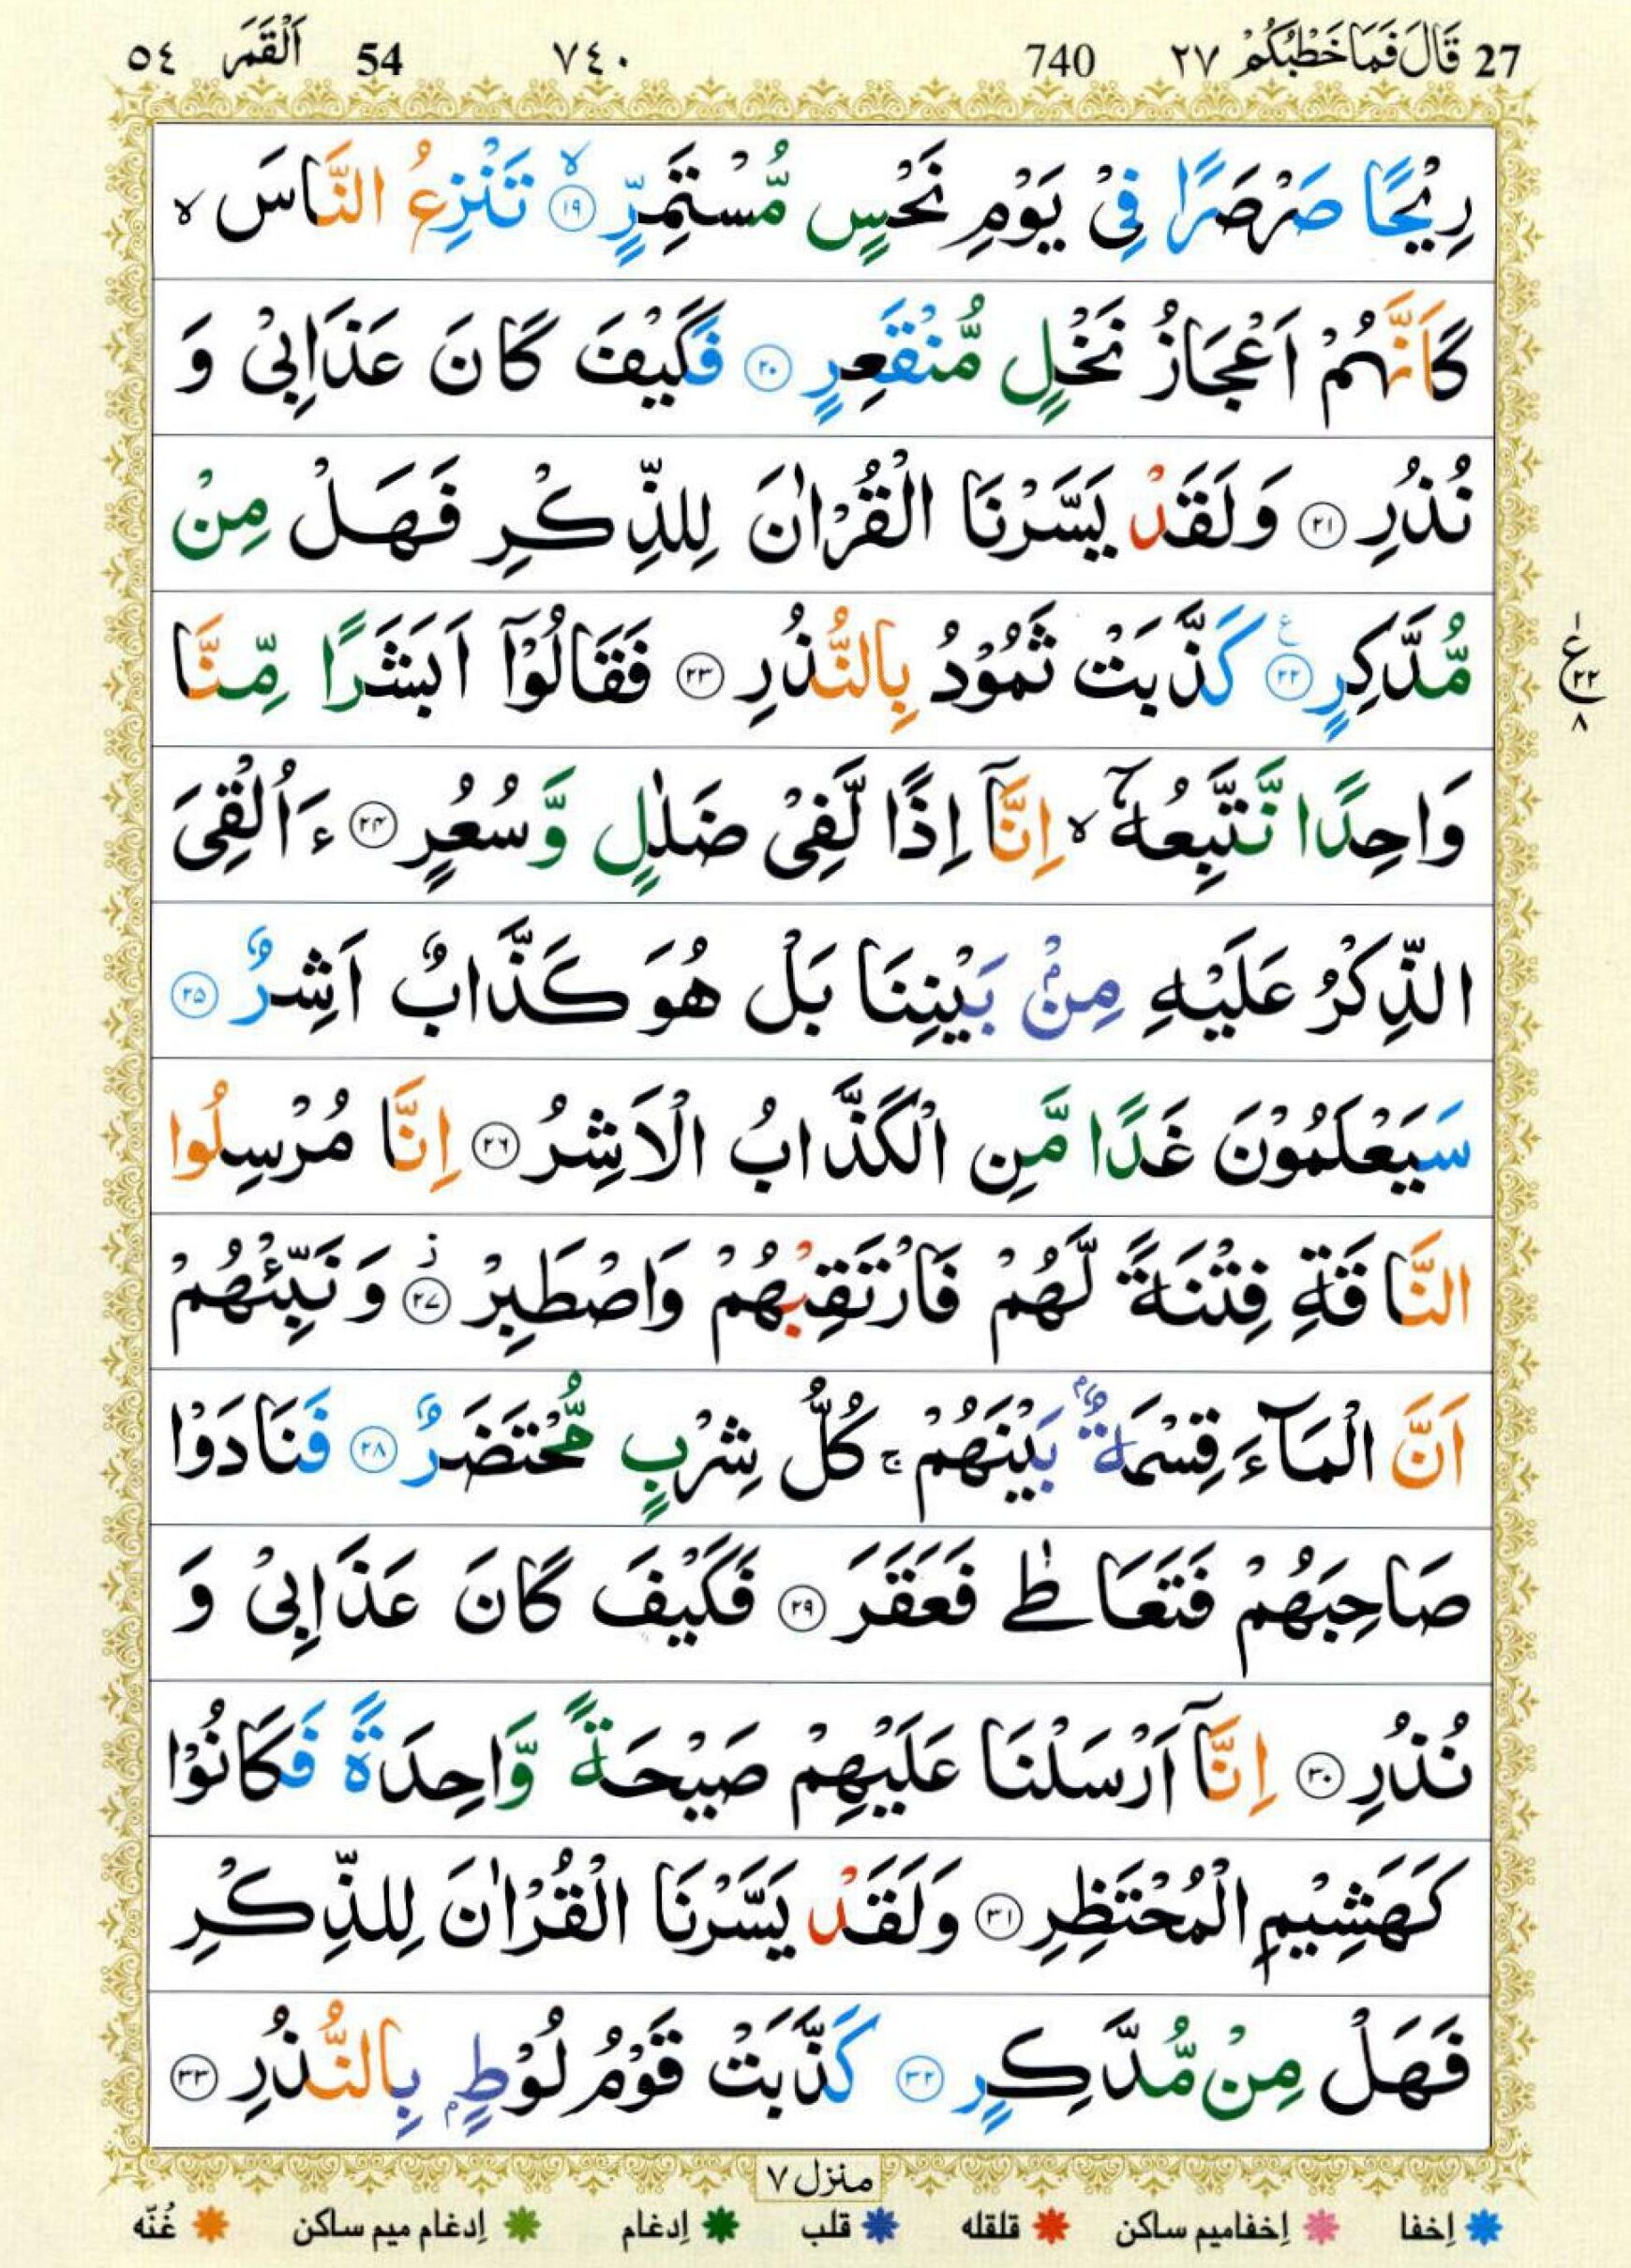 27 قَالَ فَمَا خَطْبُكُمْ ٢٧ 740 ٧٤٠ 54 اَلْقَمَر ٥٤
رِيْحًا صَرْصَرًا فِىْ يَوْمِ نَحْسٍ مُّسْتَمِرٍّ ۙ‏ ﴿۱۹﴾ تَنْزِعُ النَّاسَ ۙ
كَاَنَّهُمْ اَعْجَازُ نَخْلٍ مُّنْقَعِرٍ ﴿۲۰﴾ فَكَيْفَ كَانَ عَذَابِىْ وَ
نُذُرِ ﴿۲۱﴾ وَلَقَدْ يَسَّرْنَا الْقُرْاٰنَ لِلذِّكْرِ فَهَلْ مِنْ
مُّدَّكِرٍ ﴿۲۲﴾ ع كَذَّبَتْ ثَمُوْدُ بِالنُّذُرِ ﴿۲۳﴾ فَقَالُوْٓا اَبَشَرًا مِّنَّا
ع ۲۲ ۸
وَاحِدًا نَّتَّبِعُهٗۤ ۙ اِنَّاۤ اِذًا لَّفِىْ ضَلٰلٍ وَّسُعُرٍ ﴿۲۴﴾ ءَاُلْقِىَ
الذِّكْرُ عَلَيْهِ مِنْۢ بَيْنِنَا بَلْ هُوَ كَذَّابٌ اَشِرٌ ﴿۲۵﴾
سَيَعْلَمُوْنَ غَدًا مَّنِ الْكَذَّابُ الْاَشِرُ ﴿۲۶﴾ اِنَّا مُرْسِلُوا
النَّاقَةِ فِتْنَةً لَّهُمْ فَارْتَقِبْهُمْ وَاصْطَبِرْ ز ﴿۲۷﴾ وَنَبِّئْهُمْ
اَنَّ الْمَآءَ قِسْمَةٌۢ بَيْنَهُمْ ۚ كُلُّ شِرْبٍ مُّحْتَضَرٌ ﴿۲۸﴾ فَنَادَوْا
صَاحِبَهُمْ فَتَعَاطٰى فَعَقَرَ ﴿۲۹﴾ فَكَيْفَ كَانَ عَذَابِىْ وَ
نُذُرِ ﴿۳۰﴾ اِنَّاۤ اَرْسَلْنَا عَلَيْهِمْ صَيْحَةً وَّاحِدَةً فَكَانُوْا
كَهَشِيْمِ الْمُحْتَظِرِ ﴿۳۱﴾ وَلَقَدْ يَسَّرْنَا الْقُرْاٰنَ لِلذِّكْرِ
فَهَلْ مِنْ مُّدَّكِرٍ ﴿۳۲﴾ كَذَّبَتْ قَوْمُ لُوْطٍۭ بِالنُّذُرِ ﴿۳۳﴾
منزل ٧
إخفا إخفاميم ساكن قلقله قلب إدغام إدغام ميم ساكن غُنّه